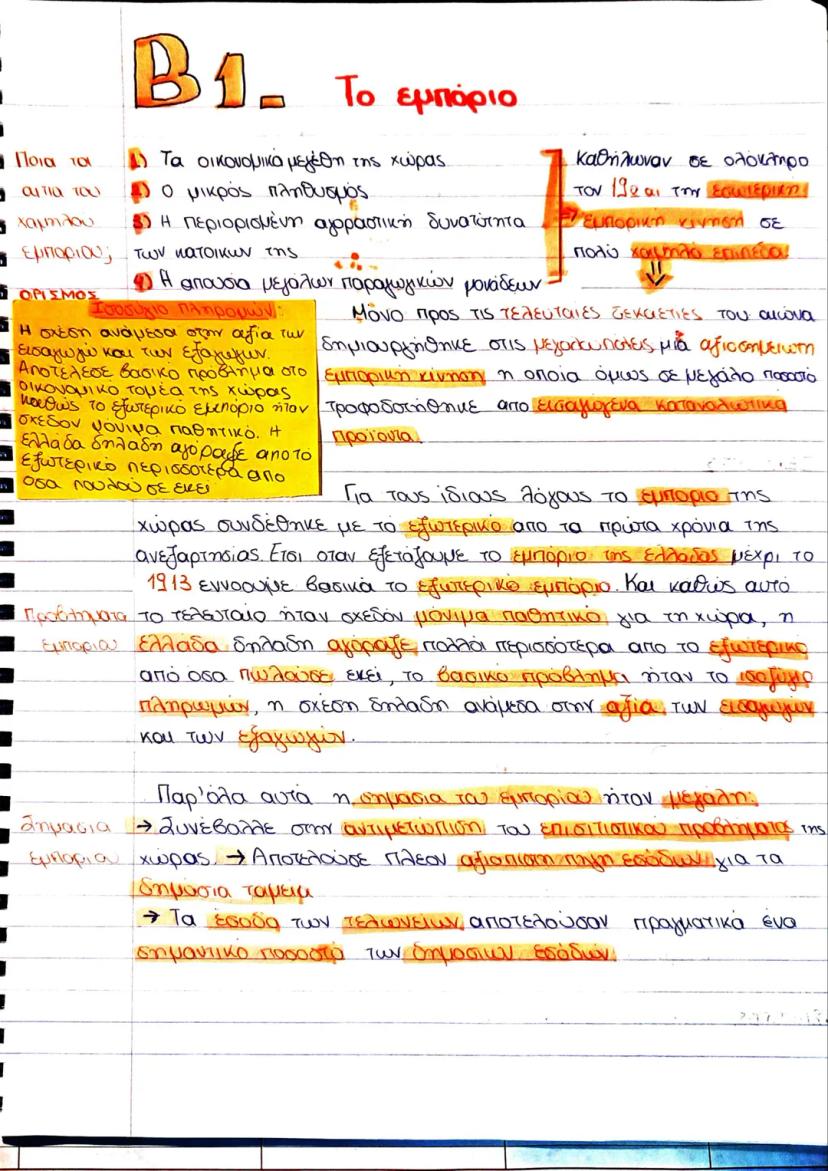 Β1.
Το εμπόριο
Ποια τα
αιτια του
χαμηλου
εμποριου;
1) Τα οικονομικά μεγέθη της χώρας
2) Ο μικρός πληθυσμός
3) Η περιορισμένη αγοραστική δυνατότητα
των κατοικων της
4) Η απουσία μεγάλων παραγωγικών μονάδεων
Καθήλωναν σε ολόκληρο
τον 19ο αι την εσωτερική
εμπορική κινηση σε
πολύ χαμηλά επίπεδα
ΟΡΙΣΜΟΣ
Ισοζύγιο πληρομών:
Η σχέση ανάμεσα στην αξία των
εισαγωγώ και των εξαγωγων.
Αποτέλεσε βασικό πρόβλημα στο
οικονομικο τομέα της χώρας
καθώς το εξωτερικό εμπόριο ήταν
σχεδον μόνιμα παθητικό. Η
ελλάδα δηλαδη αγόραζε απο το
εξωτερικό περισσοτερα απο
οσα πουλούσε εκεί
Μόνο προς τις τελευταίες δεκαετίες του αιώνα
δημιουργήθηκε στις μεγαλουπόλεις μία αξιοσημειωτη
εμπορική κίνηση η οποία όμως σε μεγάλο ποσοστό
τροφοδοτήθηκε απο εισαγωγενα καταναλωτικα
προϊοντα.
Για τους ίδιους λόγους το εμποριο της
χώρας συνδέθηκε με το εξωτερικό απο τα πρώτα χρόνια της
ανεξαρτησίας. Ετσι οταν εξετάζουμε το εμπόριο της ελλάδας μέχρι το
1913 εννοουμε βασικά το εξωτερικό εμπόριο. Και καθώς αυτό
Προβλήματα
εμποριου
το τελευταίο ήταν σχεδόν μόνιμα παθητικό, για τη χώρα, η
ελλάδα δηλαδη αγόραζε πολλά περισσότερα απο το εξωτερικο
από οσα πωλούσε εκεί, το βασικο πρόβλημα ήταν το ισοζύγιο
πληρωμών, η σχέση δηλαδη ανάμεσα στην αξία των εισαγωγών
και των εξαγωγών.
Παρ'όλα αυτά η σημασια του εμπορίου ήταν μεγάλη:
Σημασια
εμποριου
→ Συνέβαλλε στην αντιμετωπιση του επισιτιστικού προβληματος της
χώρας. → Αποτελούσε πλεον αξιοπιστη πηγη εσόδων για τα
δημόσια ταμεια
→ Τα έσοδα των τελωνειων αποτελούσαν πραγματικά ένα
σημαντικό ποσοστο των δημοσιων εσόδων.